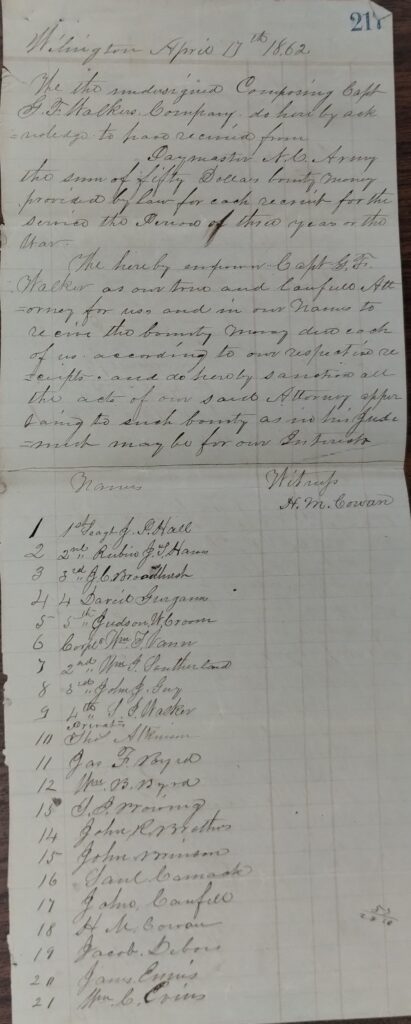 217
Wilington April 17th 1862
We the undersigned Composing Capt
G. F. Walkers Company do here by ack
=noledge to have received from
Paymaster N.C. Army
the sum of fifty Dollars bounty money
provided by law for each recruit for the
service the Period of three year or the
War.
We hereby empower Capt G. F.
Walker as our true and Lawfull Att
=orney for us, and in our Names to
receive the bounty Money due each
of us. according to our respective re
=ceipts. and do hereby sanction all
the acts of our said Attorney apper
taing to such bounty as in his Jude
=ment may be for our Interest
Names Witness
H. M. Cowan
1 1st Seagt J. P. Hall
2 2nd " Rubin J. S.
3 3rd " J. C. Broadhurst
4 4 David Gurganu
5 5th " Judson W. Croom
6 Corpl Wm T. Vann
7 2nd " Wm J. Southerland
8 3rd " John J. Guy
9 4th " S. J. Walker
Privats
10 Thos Atkinson
11 Jas F Byrd
12 Wm B. Byrd
13 S. J.
14 John R Brothes
15 John Brinson
16 Saul Camack
17 John, Caufell
18 H M. Cowan
19 Jacob. Debose
20 James Ennis
21 Wm C. Evins